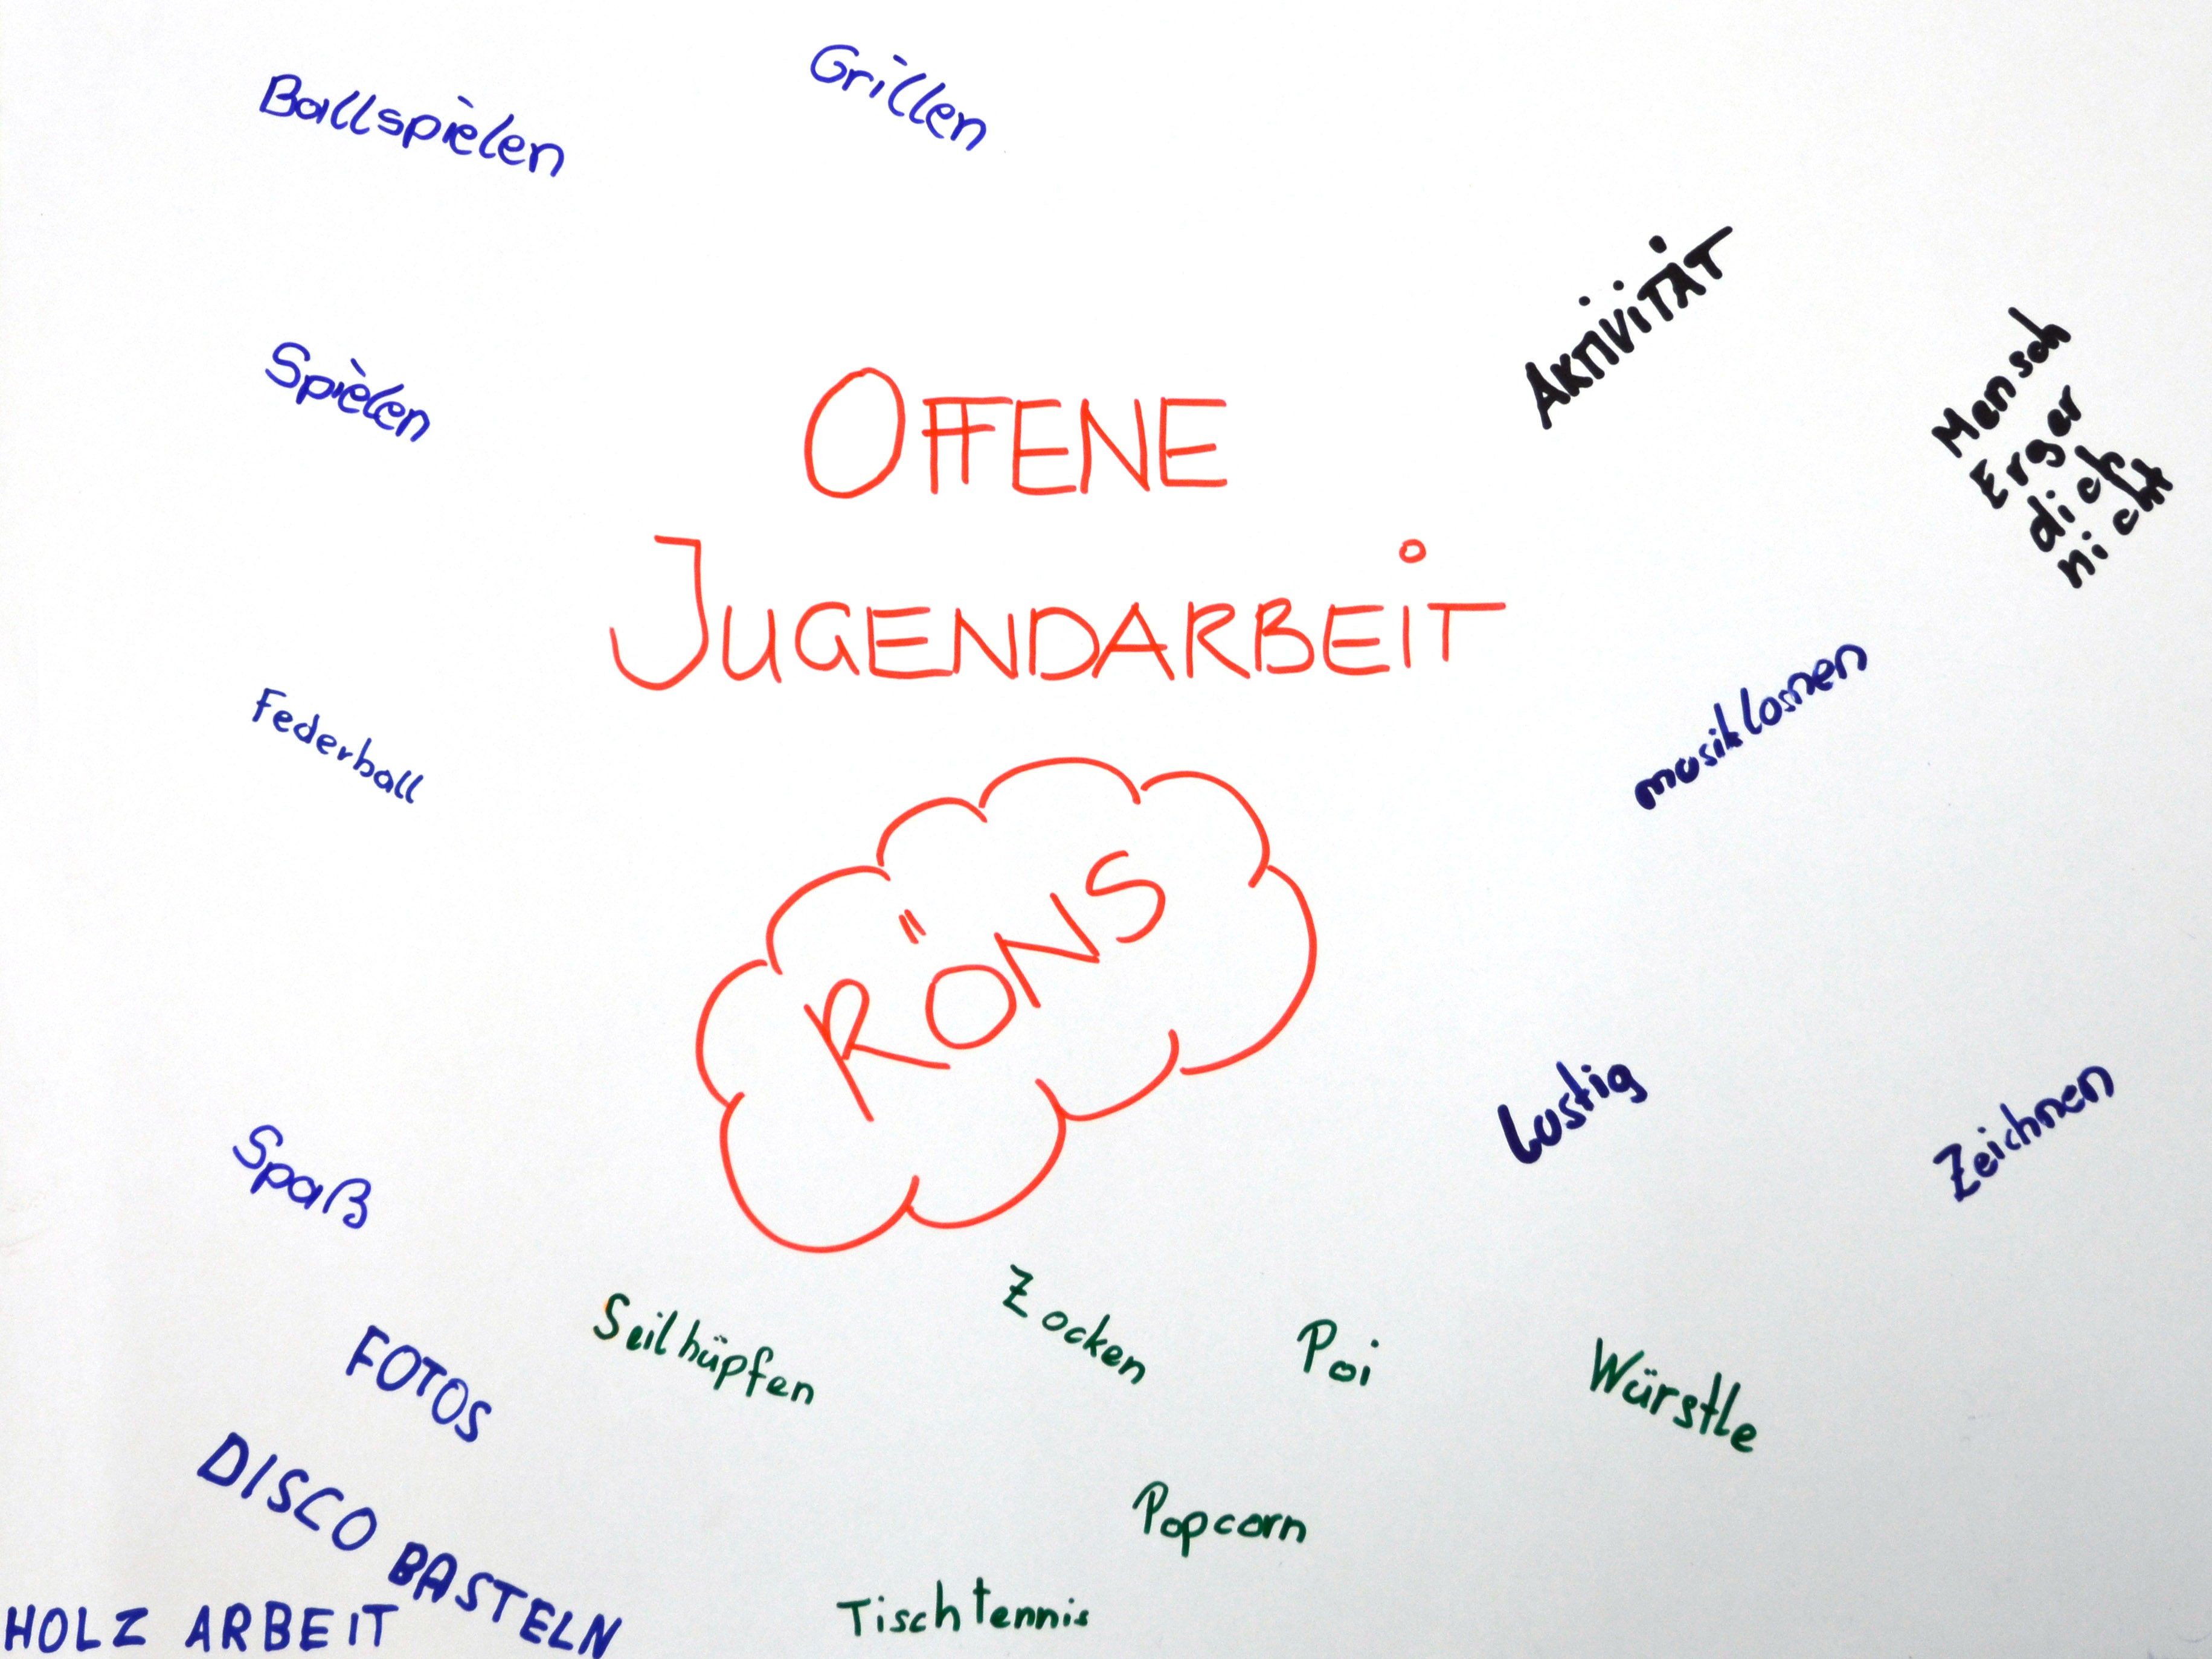 Ballspielen
Grillen
AKTIVITÄT
Spielen
Mensch
Erger
dich
nicht
OFFENE
JUGENDARBEIT
Federball
RÖNS
Lustig
Zeichnen
Spaß
Seilhüpfen
Zocken
Poi
Würstle
FOTOS
DISCO
Popcorn
BASTELN
Tischtennis
HOLZ ARBEIT